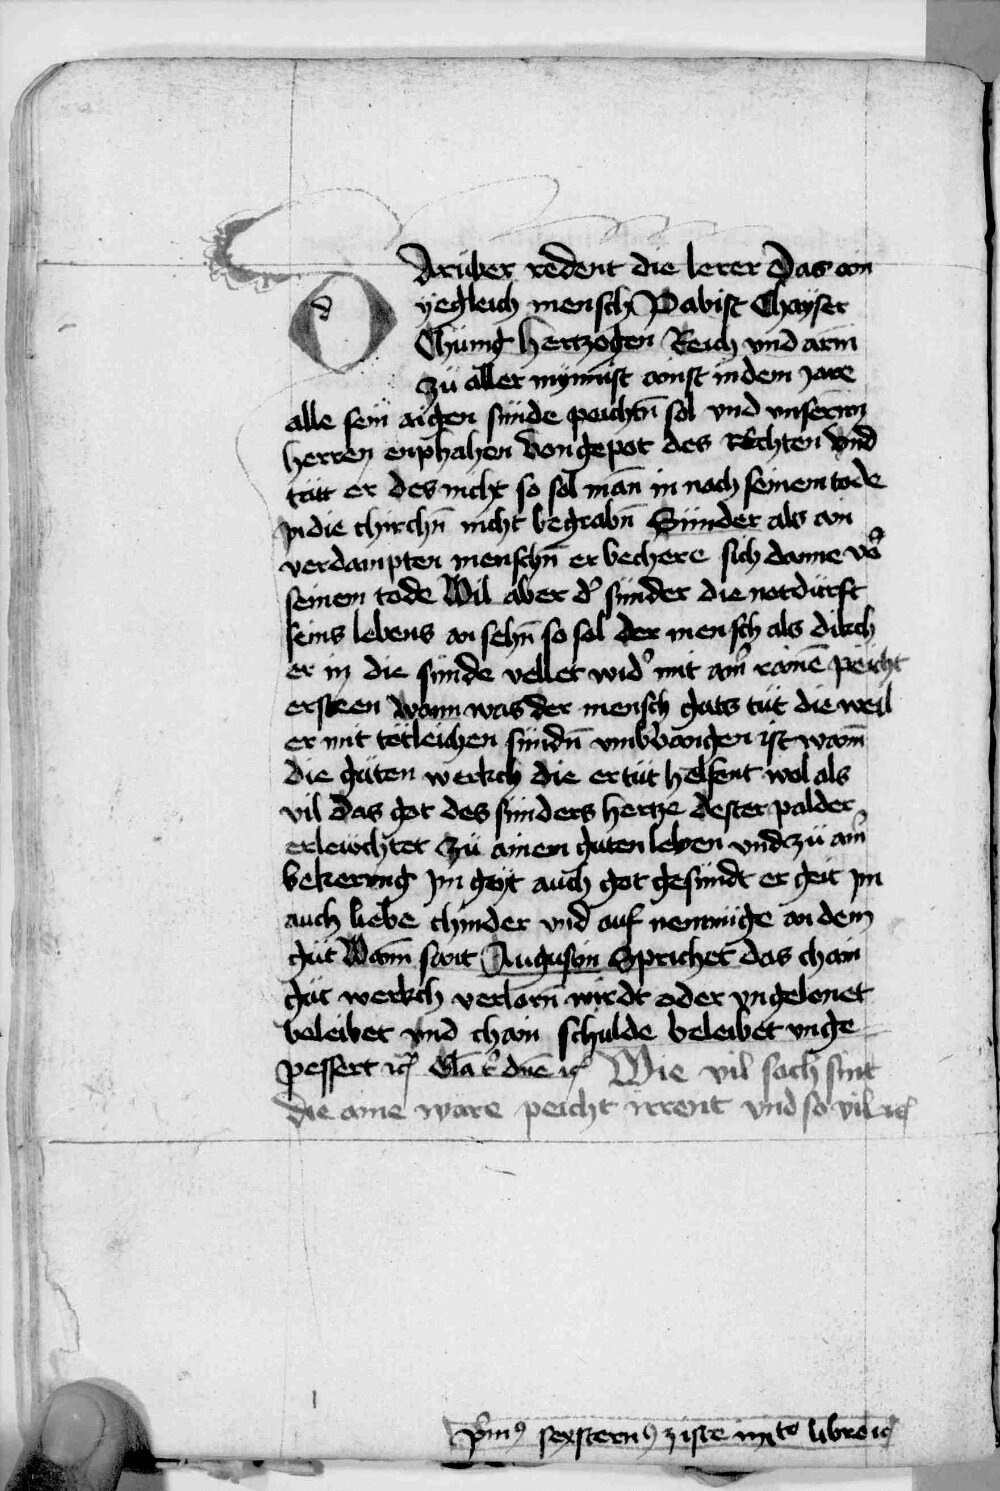 Darüber redent die lerer Das ain
yegleich mensch Pabist Chayser
Chünig hertzogen Reich vnd arm
zü aller mynnist ainst in dem jare
alle sein aigen sünde peichtñ sol vnd vnsern
herren enphahen von gepot des Rechten vnd
tütt er des nicht so sol man in nach seinem tode
jn die chirchñ nicht begrabñ Sünder als ain
verdampten menschñ er bechere sich dann võ
seinem tode Wil aber dˀ sünder die notdürft
seins lebens an sehñ so sol der mensch als dikch
er in die sünde vellet widˀ mit ainˀ rainē peicht
ersteen wann was der mensch guts tüt die weil
er mit tötleichen sündñ vmbvangen ist wann
die güten werkch die er tüt helfent wol als
vil das got des sünders hertze dester palder
erleüchtet zü ainem guten leben vnd zü ainˀ
bekerung jm geit auch got gesündt er geit jm
auch liebe chinder vnd auf nemunge an dem
güt Wann sant Augustin Sprichet das chain
güt werkch verlorñ wirdt oder vngelonet
beleibet vnd chain schulde beleibet vnge
pessert ⁊c̃ Wie vil sach sint
die aine ware peicht irrent vnd so vil ⁊c̃
pˀmꝰ sexternꝰ libro ⁊c̃